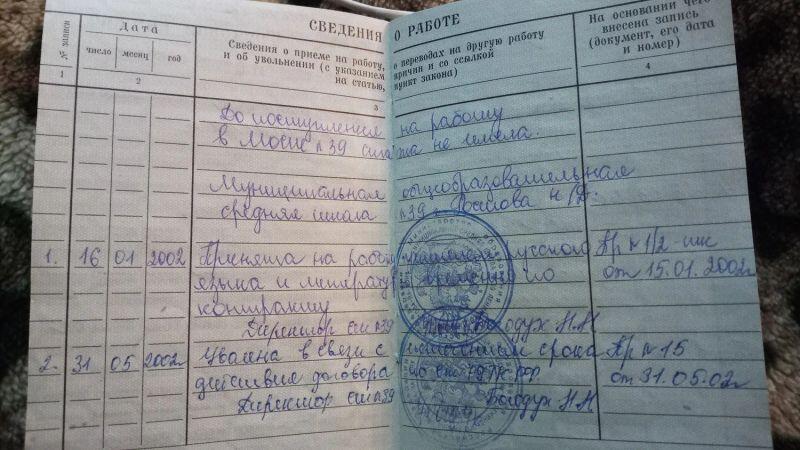 СВЕДЕНИЯ О РАБОТЕ
№ записи
Дата
число месяц год
Сведения о приеме на работу, о переводах на другую работу
и об увольнении (с указанием причин и со ссылкой
на статью, пункт закона)
На основании чего
внесена запись
(документ, его дата
и номер)
1 2 3 4
До поступления на работу
в МОСШ №39 стажа не имела.
Муниципальная общеобразовательная
средняя школа №39 г. Ростова н/Д.
1. 16 01 2002 Принята на работу русского Пр № 1/2-шк
языка и литературы по от 15.01.2002г
контракту
Директор сш №39 Богодух Н.Н
2. 31 05 2002г Уволена в связи с истечением срока Пр № 15
действия договора по от 31.05.02г
Директор сш №39 Богодух Н.Н